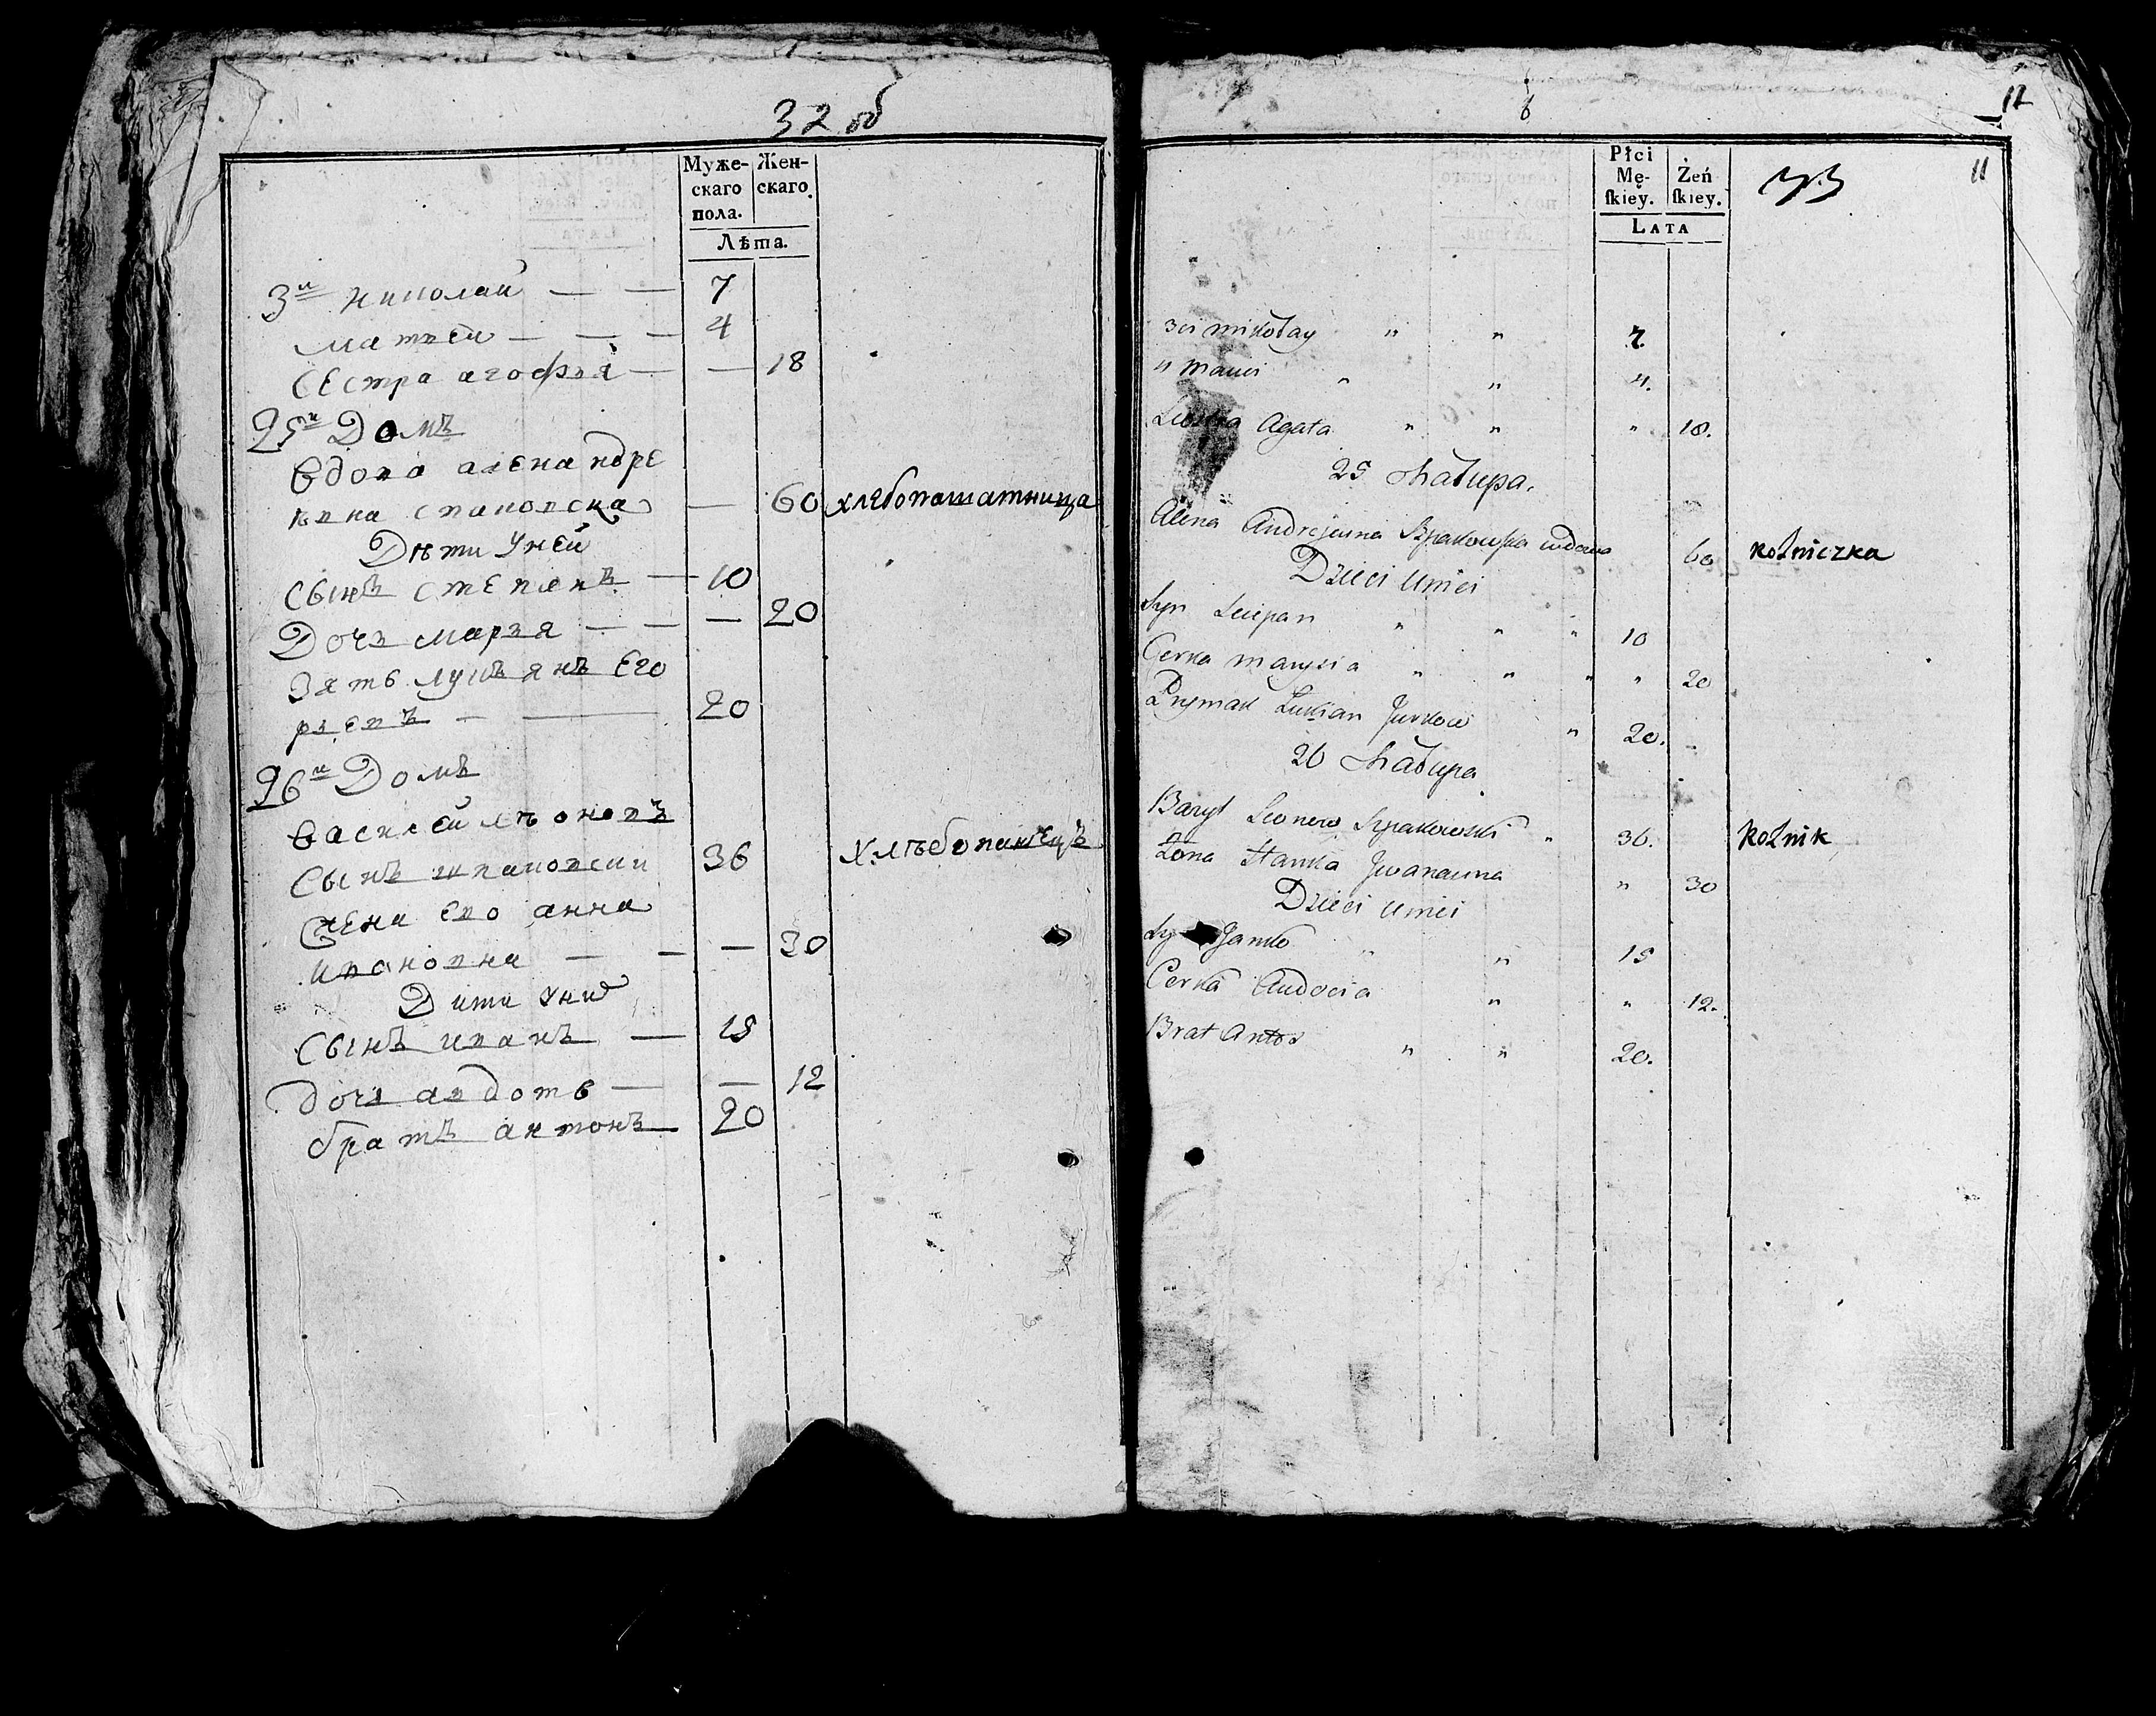 32 об
Муже-
скаго
пола.
Жен-
скаго
Лѣта.
3й николай — — 7
матвей — — — 4
сестра агофия — — 18
25й Домъ
вдова алена андре
евна спаковска — 60 хлебопашатница
Дѣти у ней
сынъ степанъ — 10
Дочь марья — — — 20
зять лукъянъ его
рьевъ — — 20
26й Домъ
василей леоновъ
сынъ шпаковски 36 хлѣбопашецъ
жена ево анна
ивановна — — — 30
Дити у них
сынъ иванъ — 15
дочь авдоть — — 12
братъ антонъ 20
8
12
11
33
Płci
Mę-
ſkiey.
Żeń
ſkiey.
LATA
3ci mikołay " " 7.
4 " " 4.
Agata " " " 18.
25 Chałupa.
Alena Andrejewna Szpakowska wdowa 60 Rolniczka
Dzieci u niei
Syn Sciepan " " " 10
Corka marysia " " " " 20
Prymak Lukian Jurkow " 20.
26 Chałupa
Bazyl Leonow Szpakowski " 36. Rolnik
Żona Hanka Jwanawna " 30
Dzieci u niei
Sy Janko " " 15
Corka Audocia " " 12.
Brat Antos " " 20.